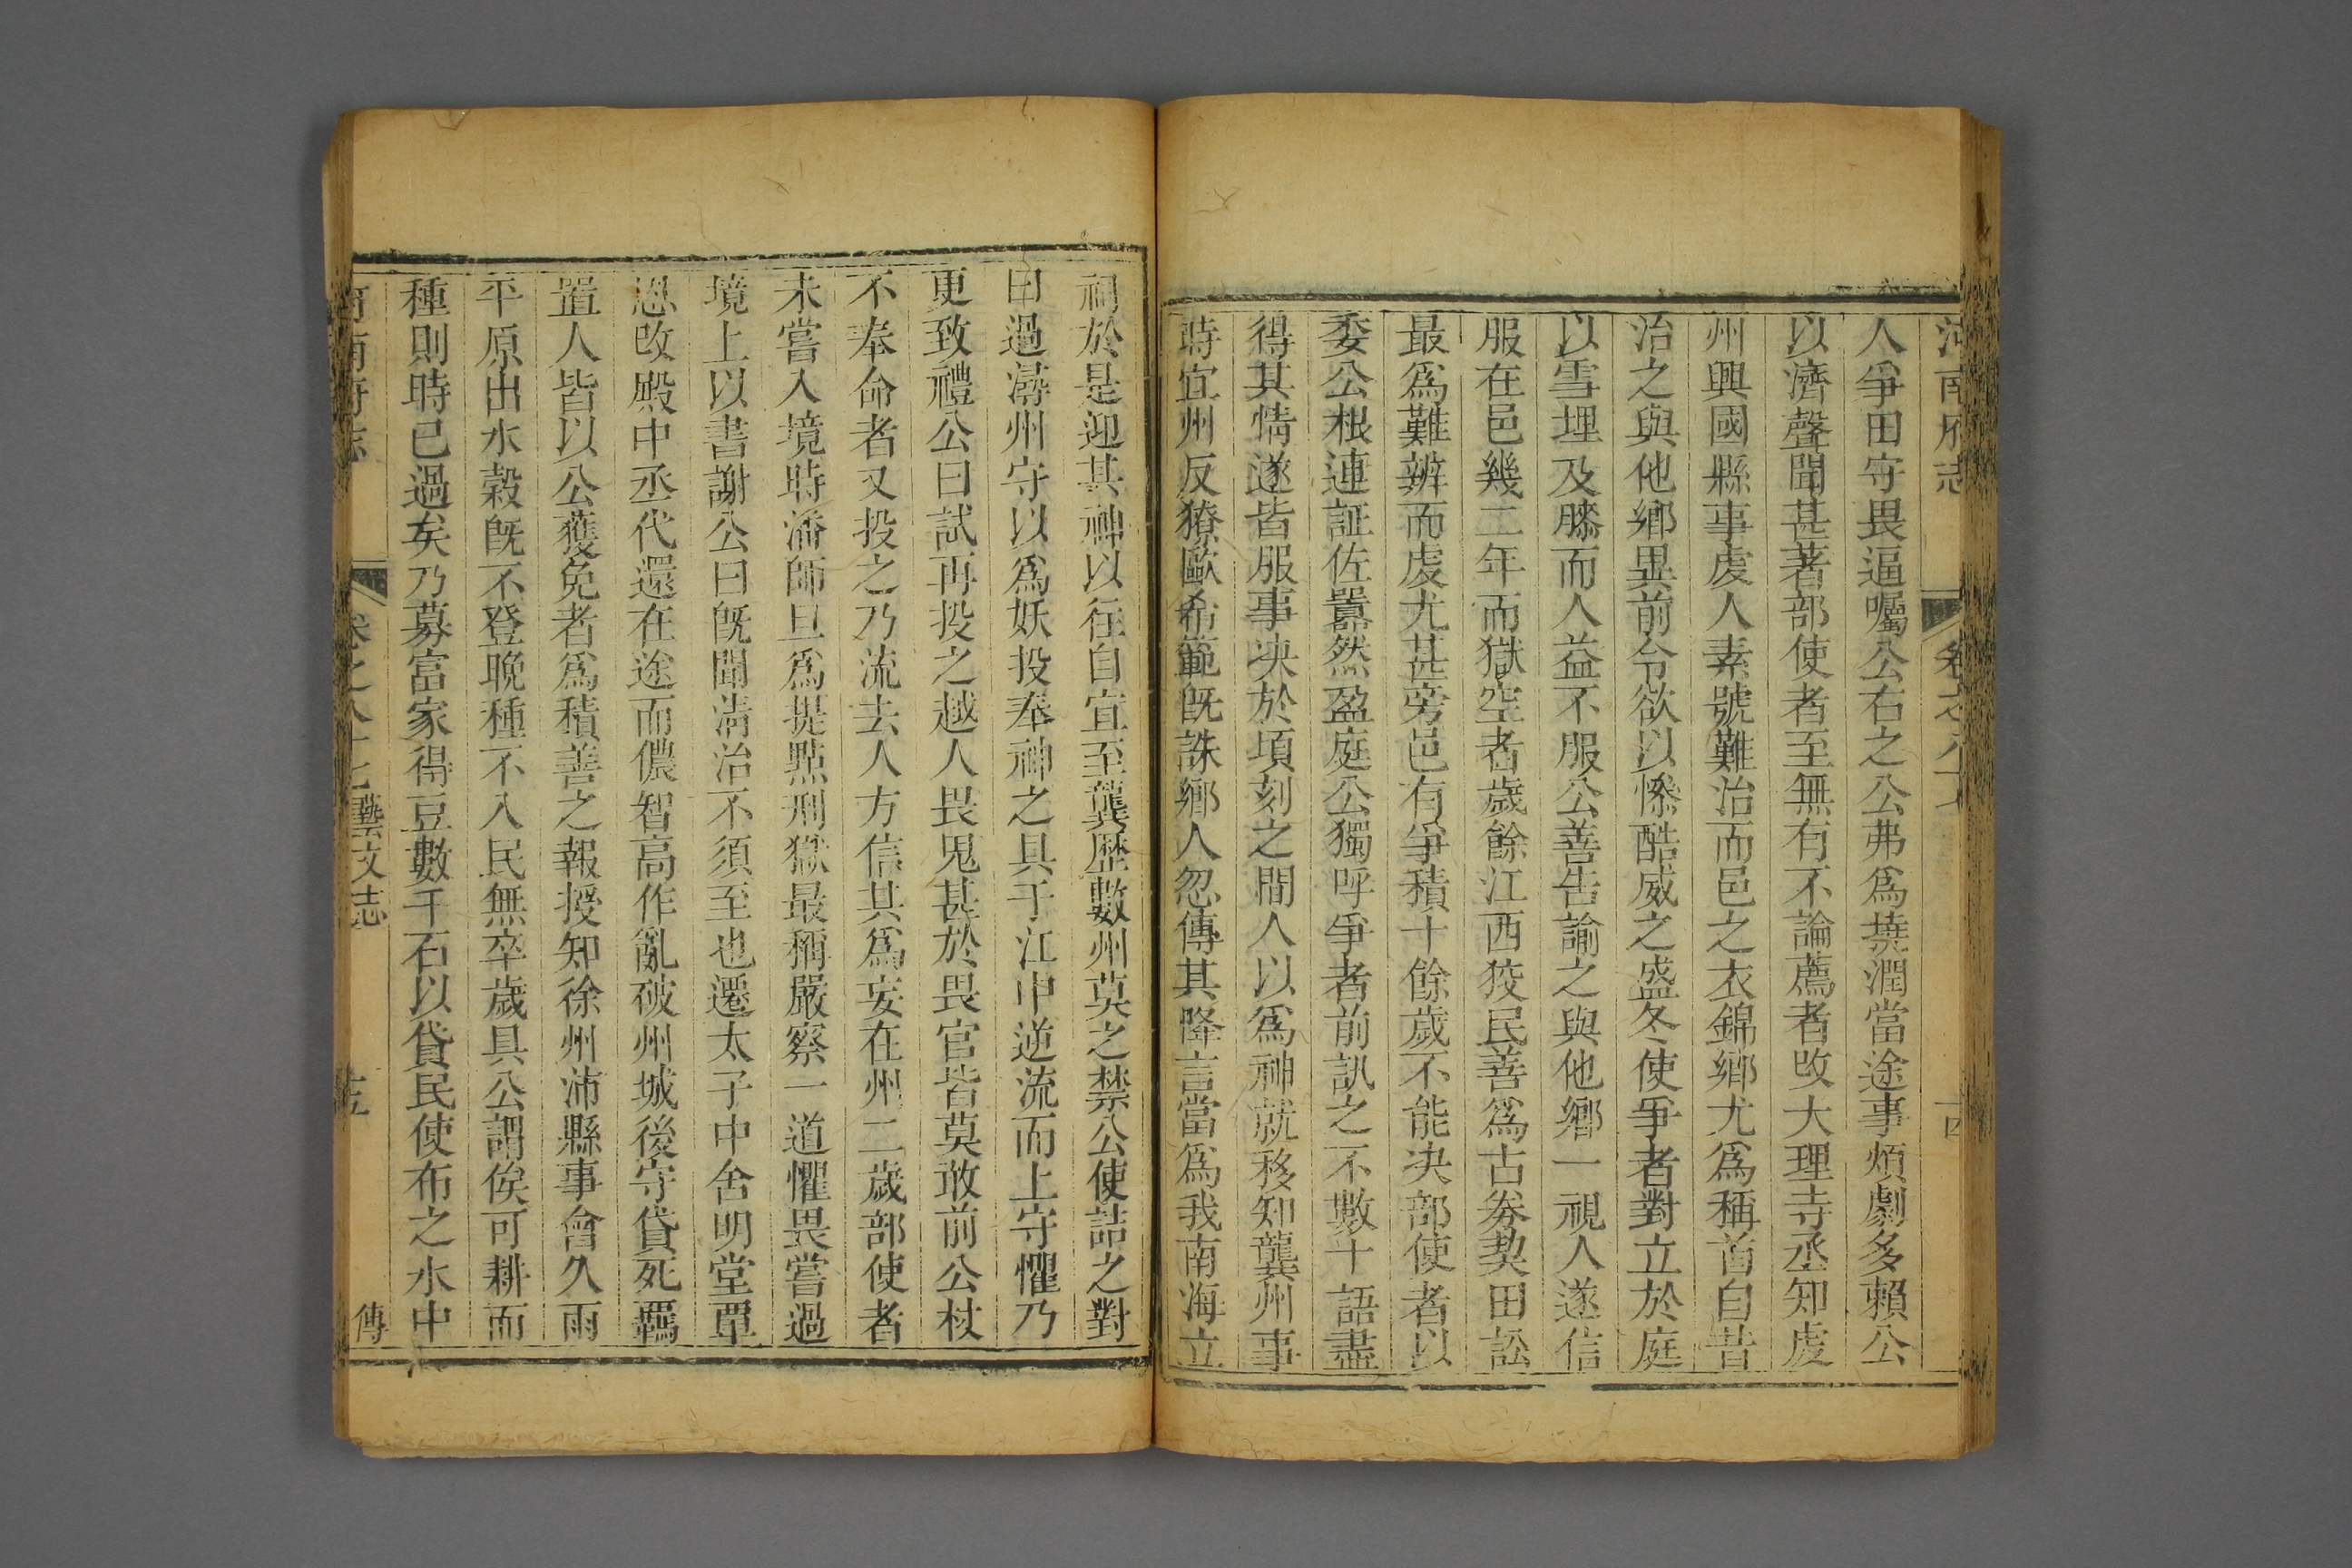 河南府志 卷之八十七 十四
人爭田守畏逼囑公右之公弗爲撓潤當途事煩劇多賴公
以濟聲聞甚著部使者至無有不論薦者改大理寺丞知虔
州興國縣事虔人素號難治而邑之衣錦鄉尤爲稱首自昔
治之與他鄉異前令欲以慘酷威之盛冬使爭者對立於庭
以雪埋及膝而人益不服公善告諭之與他鄉一視人遂信
服在邑幾二年而獄空者歲餘江西狡民善爲古劵契田訟
最爲難辨而虔尤甚旁邑有爭積十餘歲不能决部使者以
委公根連証佐囂然盈庭公獨呼爭者前訊之不數十語盡
得其情遂皆服事决於頃刻之間人以爲神就移知龔州事
時宜州反獠歐希範既誅鄉人忽傳其降言當爲我南海立
祠於是迎其神以往自宜至龔歷數州莫之禁公使詰之對
曰過潯州守以爲妖投奉神之具于江中逆流而上守懼乃
更致禮公曰試再投之越人畏鬼甚於畏官皆莫敢前公杖
不奉命者又投之乃流去人方信其爲妄在州二歲部使者
未嘗入境時潘師旦爲提點刑獄最稱嚴察一道懼畏嘗過
境上以書謝公曰旣聞清治不須至也遷太子中舍明堂覃
恩改殿中丞代還在途而儂智高作亂破州城後守貸死羈
置人皆以公獲免者爲積善之報授知徐州沛縣事會久雨
平原出水穀既不登晚種不入民無卒歲具公謂俟可耕而
種則時已過矣乃募富家得豆數千石以貸民使布之水中
河南府志 卷之八十七 藝文志 十五 傳